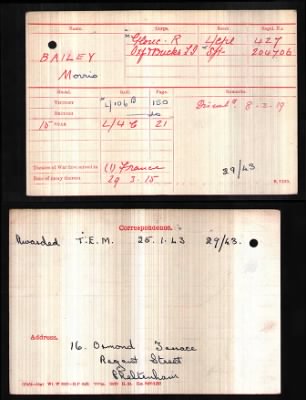 Corps. Rank. Regtl. No.
Glouc. R L/Cpl 427
BAILEY Oxf & Bucks L I Sjt 204706
Morris
Medal. Roll. Page.
Victory L/4/106 B 150
British do
15 Star L/4 C 21
8-2-19
Theatre of War first served in (1) France 29/43
Date of entry therein 29 3.15
Correspondence.
Awarded T.E.M. 25.1.43 29/43.
Address.
16. Ormond Terrace
Regent Street
Cheltenham